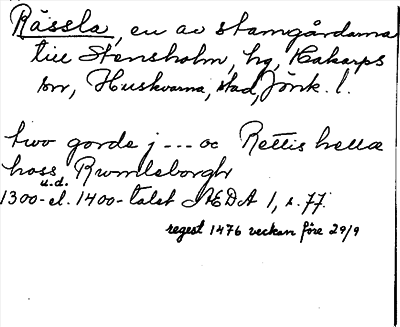 Rässla, en av stamgårdarna
till Stensholm, hg, Hakarps
sn, Huskvarna, stad, Jönk. l.
two gorde j --- oc Rettis hella
hoss Rumleborgh
u.d.
1300- el. 1400-talet ÆDA 1, s. 77.
regest 1476 veckan före 29/9